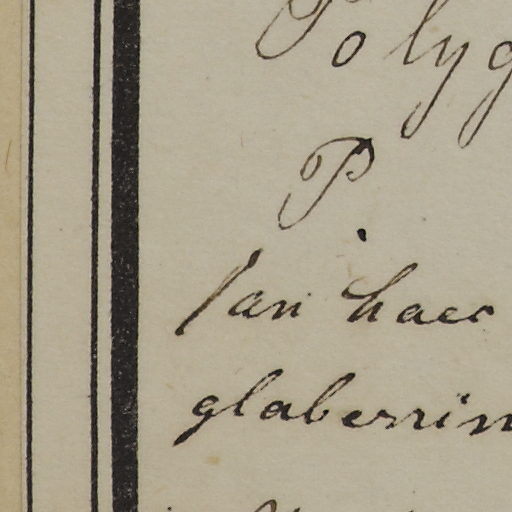 Polyg
P.
/an haec
glaberrim